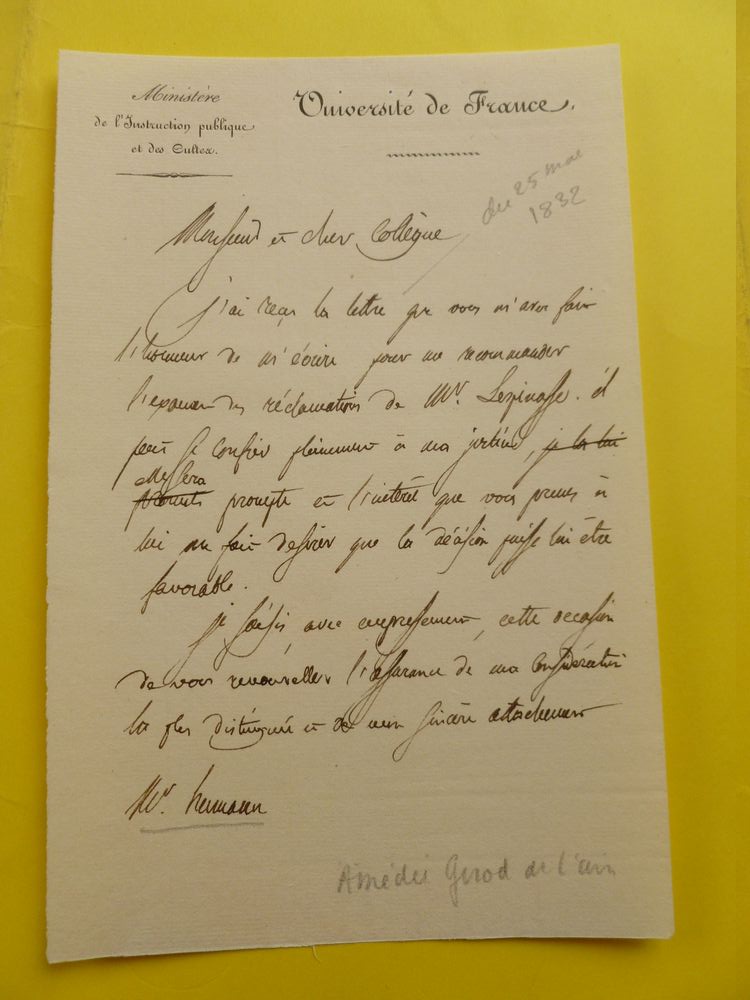 Ministère
de l'Instruction publique
et des Cultes.
Université de France.
du 25 mai
1832
Monsieur et cher Collègue
j'ai reçu la lettre que vous m'avez fait
l'honneur de m'écrire pour me recommander
l'examen des réclamations de Mr. Lespinasse. il
peut se confier pleinement à ma justice, je la lui
elle sera
promets prompte et l'intérêt que vous prenez à
lui me fait desirer que la décision puisse lui être
favorable.
je saisis avec empressement, cette occasion
de vous renouveller l'assurance de ma considération
la plus distinguée et de mon sincère attachement
Mr. hermann
Amédée Girod de l'ain